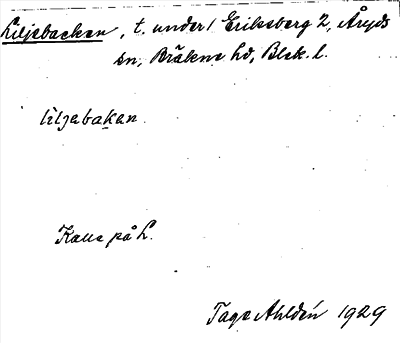 Liljebacken, t. under 1 Eriksberg 2, Åryds
sn, Bräkne hd, Blek. l.
liljabakan
Kalle på L.
Tage Ahldén 1929